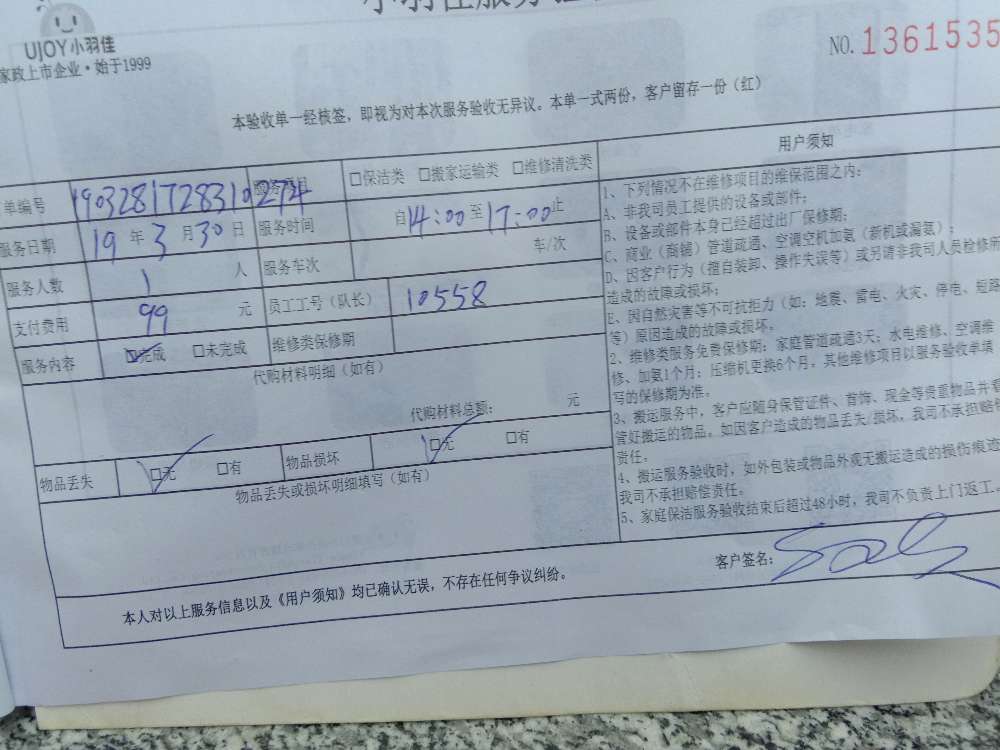 UJOY小羽佳
家政上市企业·始于1999
NO. 1361535
本验收单一经核签,即视为对本次服务验收无异议。本单一式两份,客户留存一份(红)
单编号 1903281728310274 服务项目 □保洁类 □搬家运输类 □维修清洗类
服务日期 19 年 3 月 30 日 服务时间 自 14:00 至 17:00 止
服务人数 1 人 服务车次 车/次
支付费用 99 元 员工工号(队长) 10558
服务内容 ☑完成 □未完成 维修类保修期
代购材料明细(如有)
代购材料总额: 元
物品丢失 ☑无 □有 物品损坏 ☑无 □有
物品丢失或损坏明细填写(如有)
用户须知
1、下列情况不在维修项目的维保范围之内:
A、非我司员工提供的设备或部件;
B、设备或部件本身已经超过出厂保修期;
C、商业(商铺)管道疏通、空调空机加氨(新机或漏氨);
D、因客户行为(擅自装卸、操作失误等)或另请非我司人员检修所
造成的故障或损坏;
E、因自然灾害等不可抗拒力(如:地震、雷电、火灾、停电、短路
等)原因造成的故障或损坏。
2、维修类服务免费保修期:家庭管道疏通3天;水电维修、空调维
修、加氨1个月;压缩机更换6个月,其他维修项目以服务验收单填
写的保修期为准。
3、搬运服务中,客户应随身保管证件、首饰、现金等贵重物品并看
管好搬运的物品,如因客户造成的物品丢失/损坏,我司不承担赔偿
责任。
4、搬运服务验收时,如外包装或物品外观无搬运造成的损伤痕迹
我司不承担赔偿责任。
5、家庭保洁服务验收结束后超过48小时,我司不负责上门返工。
客户签名:
本人对以上服务信息以及《用户须知》均已确认无误,不存在任何争议纠纷。